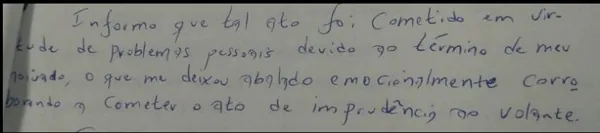 Informo que tal ato foi cometido em vir-
tude de problemas pessoais devido ao término de meu
noivado, o que me deixou abalado emocionalmente corro
borando a cometer o ato de imprudência ao volante.